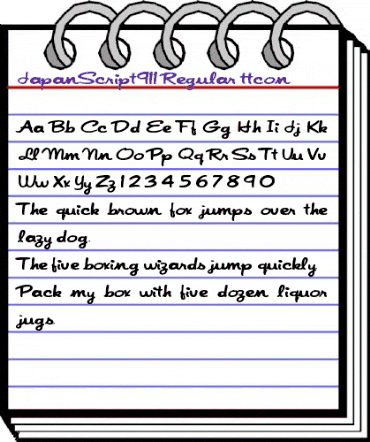 JapanScript911 Regular ttcon
Aa Bb Cc Dd Ee Ff Gg Hh Ii Jj Kk
Ll Mm Nn Oo Pp Qq Rr Ss Tt Uu Vv
Ww Xx Yy Zz 1 2 3 4 5 6 7 8 9 0
The quick brown fox jumps over the
lazy dog.
The five boxing wizards jump quickly.
Pack my box with five dozen liquor
jugs.